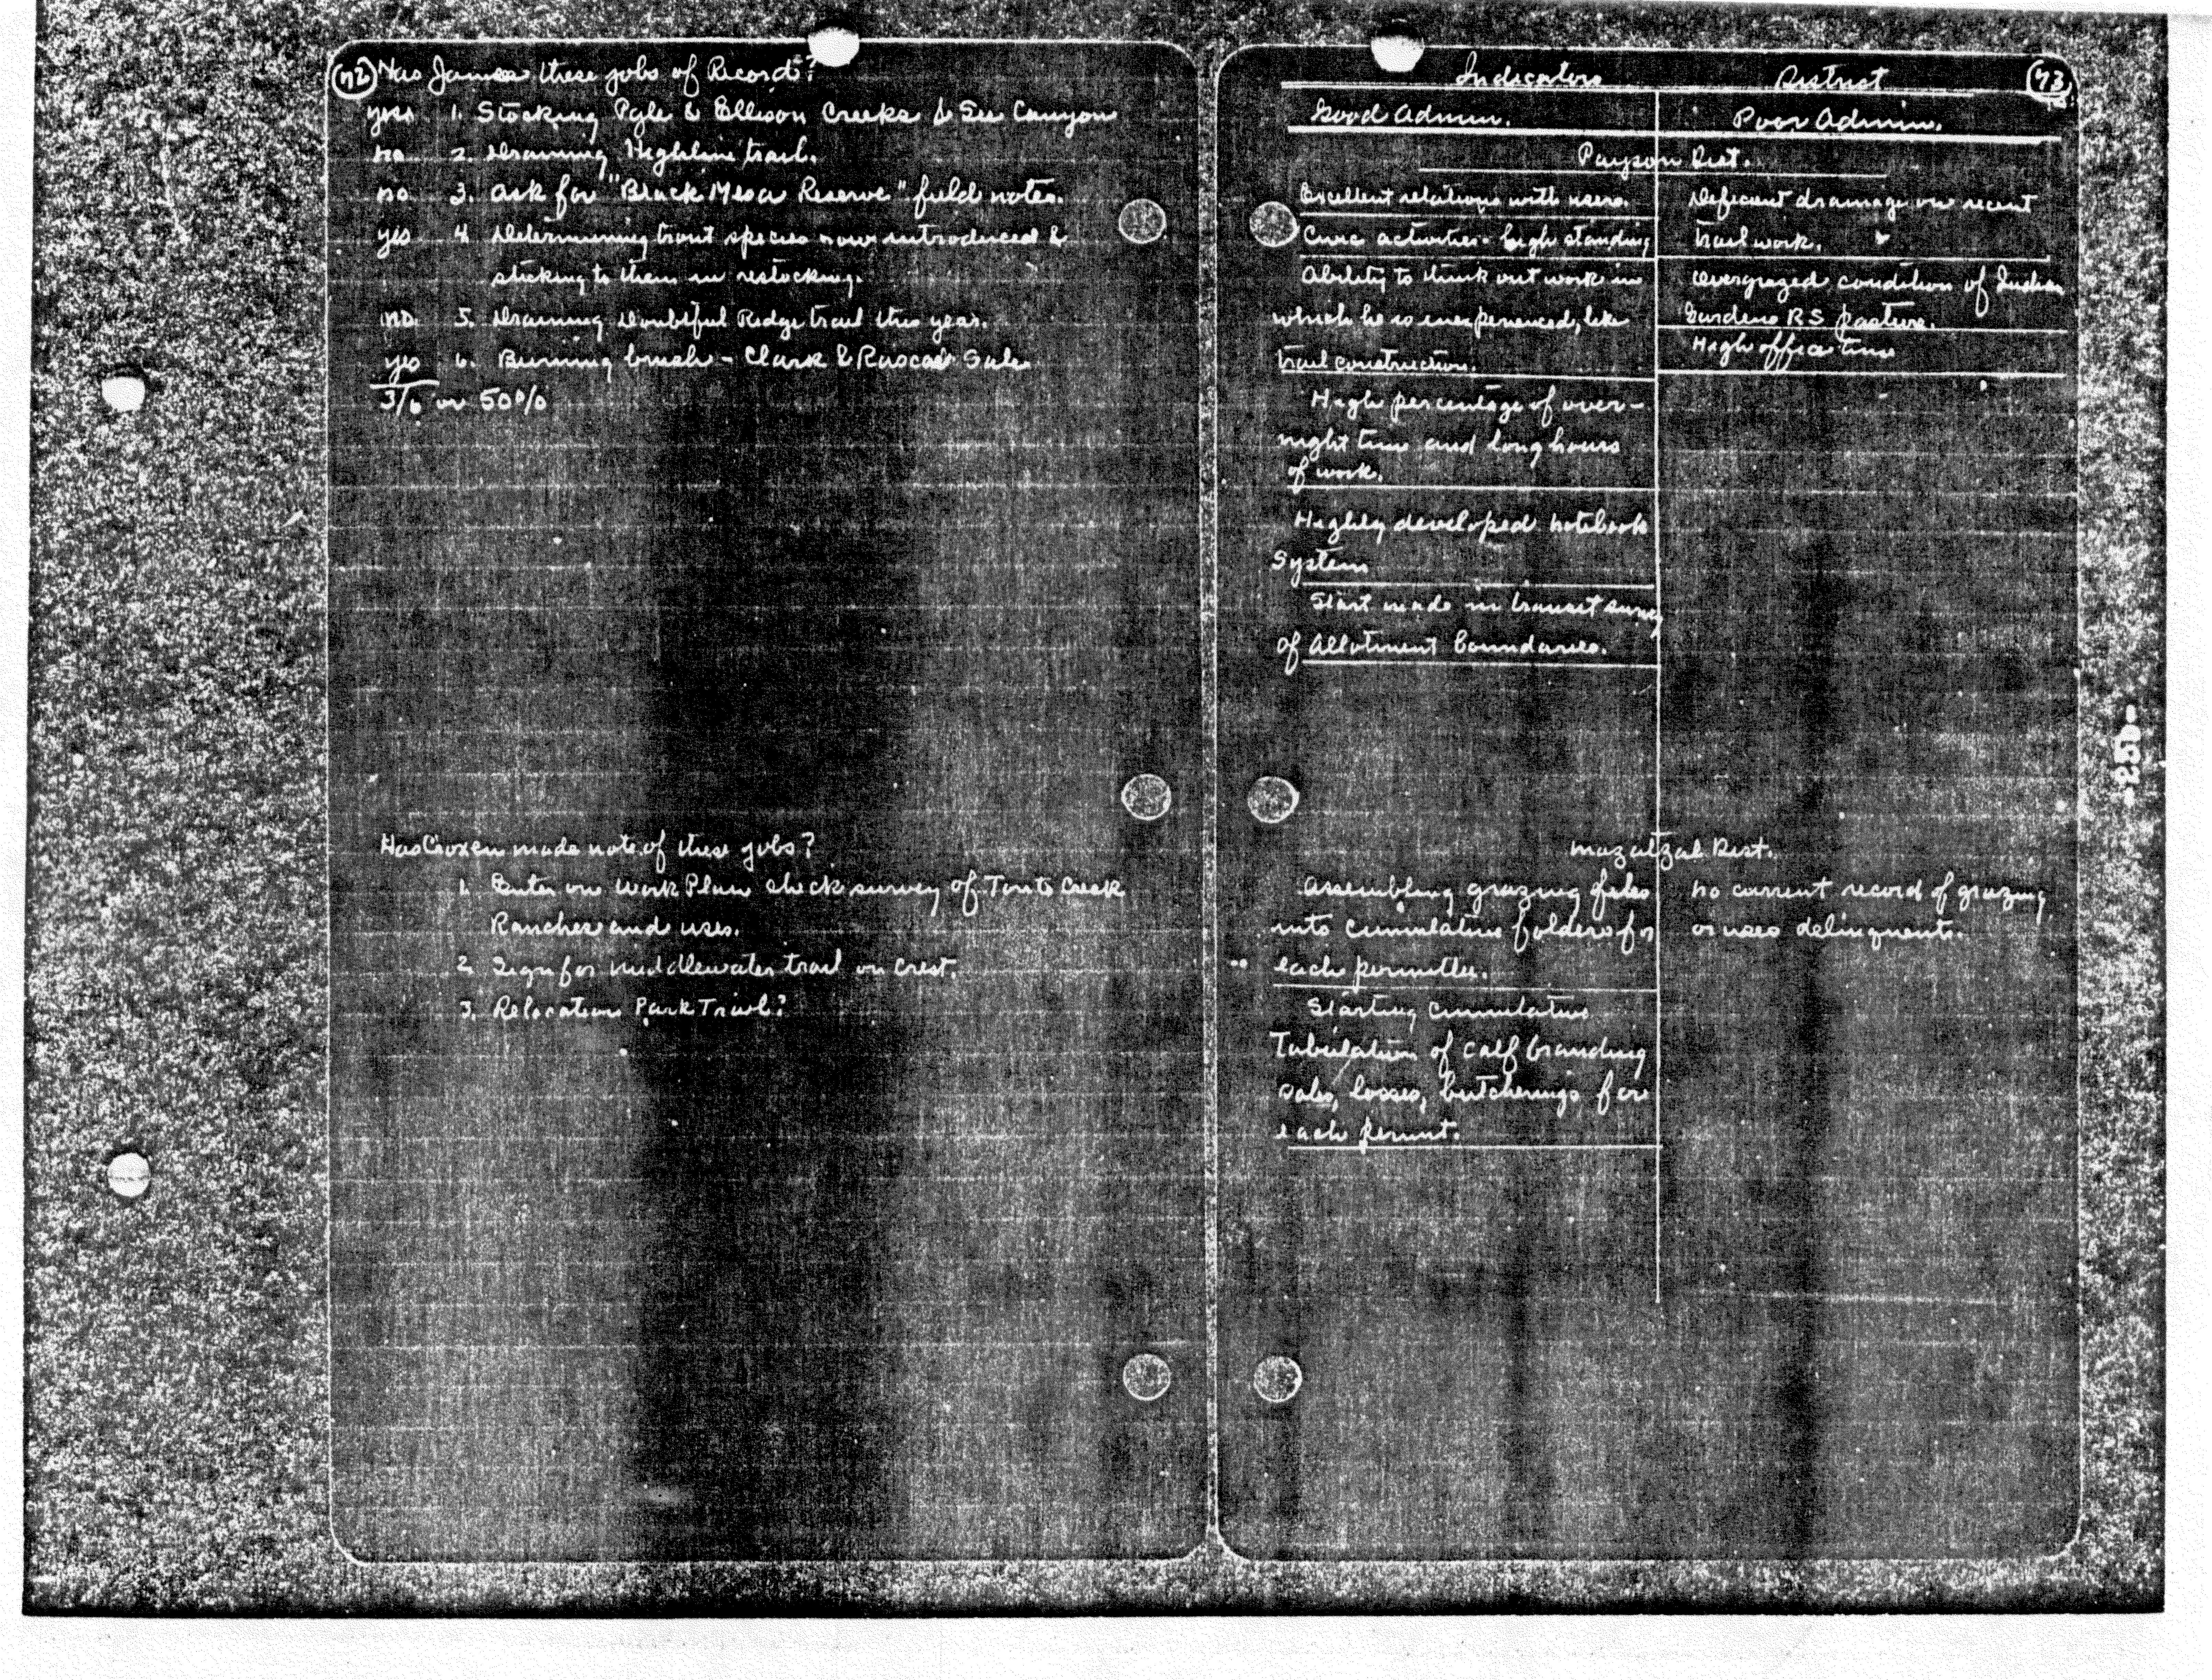 72 Has James these jobs of Record?
yes 1. Stocking Pyle & Ellison Creeks & See Canyon
no 2. Draining Highline trail.
no 3. Ask for "Black Mesa Reserve" field notes.
yes 4 Determining trout species now introduced &
sticking to them in restocking.
no. 5. Draining Doubtful Ridge trail this year.
yes 6. Burning brush - Clark & Rascal Sale
3/6 or 50%
Has Croxen made note of these jobs?
1. Enter on Work Plan check survey of Tonto Creek
Ranches and uses.
2. Sign for Middlewater trail on Crest.
3. Relocation Park Trail?
Indicators District 73
Good Admin. Poor Admin.
Payson Dist.
Excellent relations with users.
Civic activities - high standing
Ability to think out work in
which he is inexperienced, like
trail construction.
High percentage of over-
night time and long hours
of work.
Highly developed notebook
System
Start made in transit survey
of Allotment boundaries.
Deficient drainage on recent
trail work.
Overgrazed condition of Indian
Gardens RS pasture.
High office time
Mazatzal Dist.
Assembling grazing files
into cumulative folders for
each permittee.
Starting cumulative
Tabulation of calf branding
sales, losses, butcherings for
each permit.
No current record of grazing
or uses delinquents.
-25-